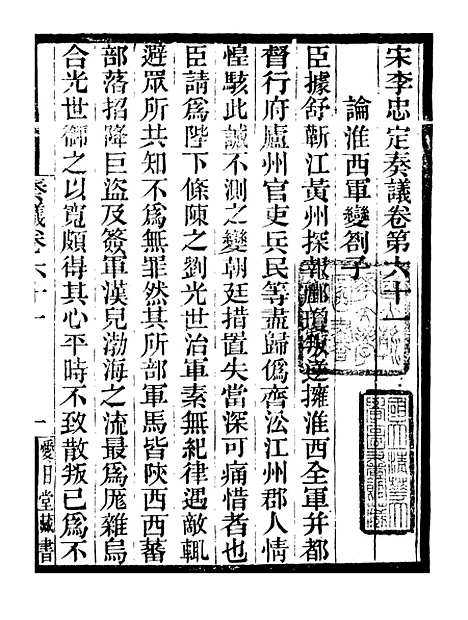 宋李忠定奏議卷第六十一
論淮西軍變劄子
臣據舒蘄江黃州探報酈瓊叛逆擁淮西全軍并都
督行府廬州官吏兵民等盡歸僞齊沿江州郡人情
惶駭此誠不測之變朝廷措置失當深可痛惜者也
臣請爲陛下條陳之劉光世治軍素無紀律遇敵輒
避眾所共知不爲無罪然其所部軍馬皆陝西西蕃
部落招降巨盜及簽軍漢兒渤海之流最爲厖雜烏
合光世御之以寬頗得其心平時不致散叛已爲不
奏議卷六十一
一
愛日堂藏書